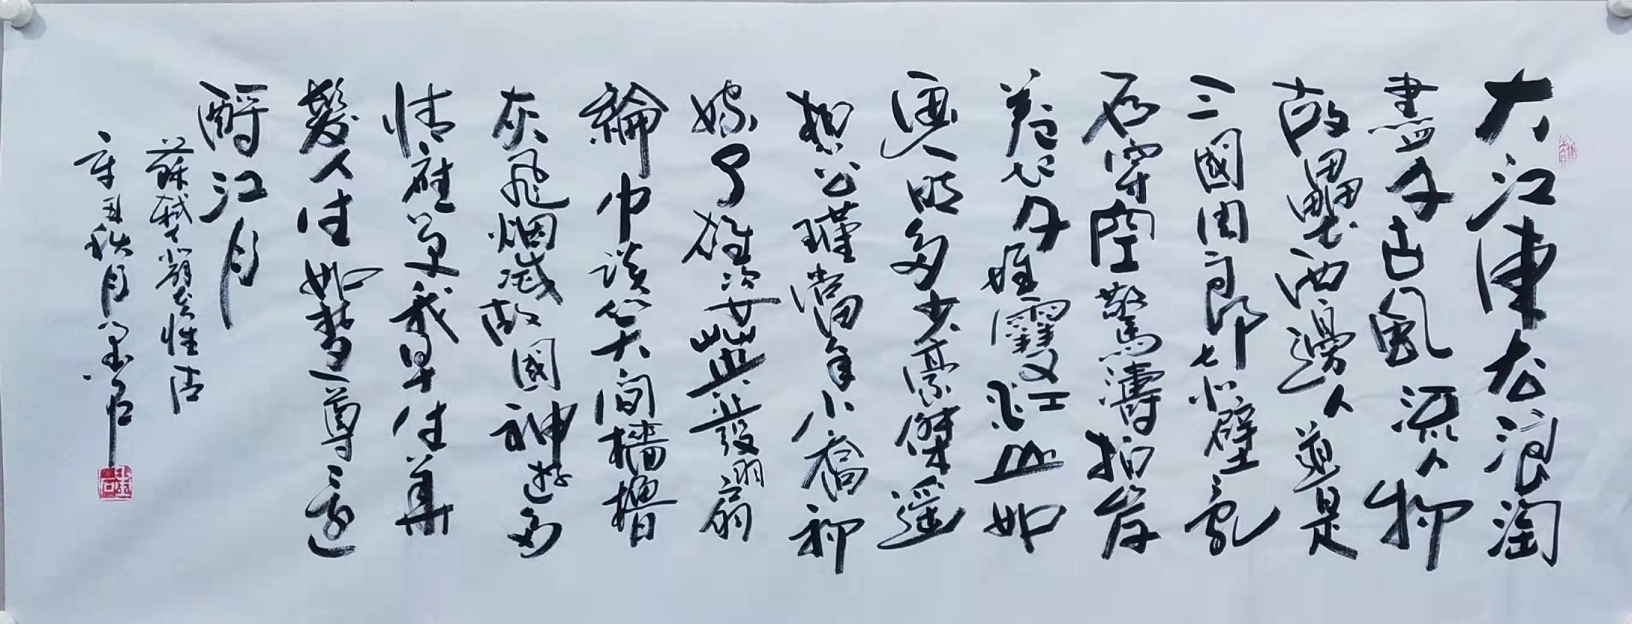 大江東去浪淘
盡千古風流人物
故壘西邊人道是
三國周郎赤壁亂
石穿空驚濤拍岸
卷起千堆雪江山如
畫一時多少豪傑遙
想公瑾當年小喬初
嫁了雄姿英發羽扇
綸巾談笑間檣櫓
灰飛烟滅故國神遊多
情應笑我早生華
髮人生如夢一尊還
酹江月
蘇軾
辛丑秋月